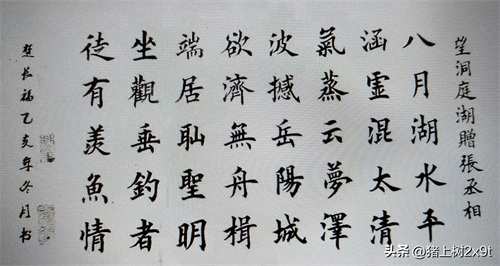 望洞庭湖贈張丞相
八月湖水平
涵霊混太清
氣蒸云夢澤
波撼岳陽城
欲濟無舟楫
端居恥聖明
坐觀垂釣者
徒有羨魚情
楚长福乙亥年冬月书
头条 @猪上树2x9t